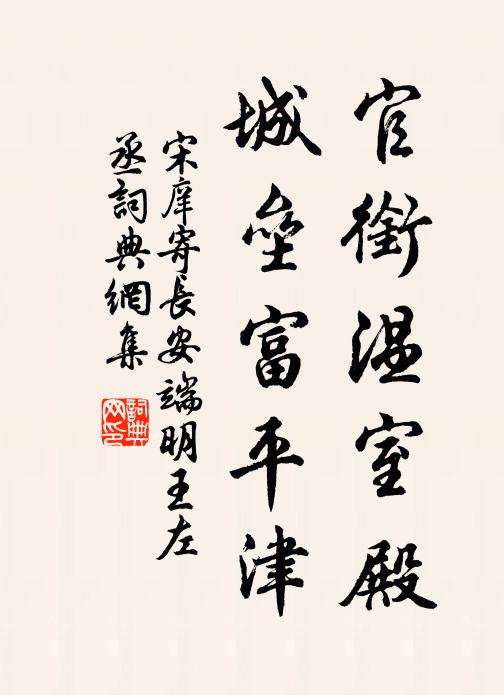 官銜温室殿
城壘富平津
宋庠寄長安端明王左
丞詞典網集
詞典
网印